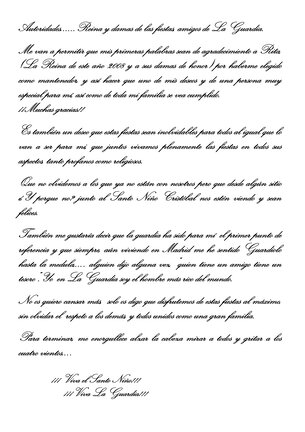 Autoridades...... Reina y damas de las fiestas, amigos de La Guardia.
Me van a permitir que mis primeras palabras sean de agradecimiento a Rita,
(La Reina de este año 2008 y a sus damas de honor) por haberme elegido
como mantenedor, y así hacer que uno de mis deseos y de una persona muy
especial para mí, así como de toda mi familia se vea cumplido.
¡¡Muchas gracias!!
Es también un deseo que estas fiestas sean inolvidables para todos al igual que lo
van a ser para mí, que juntos vivamos plenamente las fiestas en todos sus
aspectos, tanto profanos como religiosos.
Que no olvidemos a los que ya no están con nosotros pero que desde algún sitio
¿Y porque no? junto al Santo Niño Cristóbal nos estén viendo y sean
felices.
También me gustaría decir que la guardia ha sido para mí el primer punto de
referencia y que siempre, aún viviendo en Madrid me he sentido "Guardiolo
hasta la medula.... alguien dijo alguna vez, "quien tiene un amigo tiene un
tesoro". Yo en La Guardia soy el hombre más rico del mundo.
No os quiero cansar más solo os digo que disfrutemos de estas fiestas al máximo
sin olvidar el respeto a los demás y todos unidos como una gran familia.
Para terminar, me enorgullece alzar la cabeza mirar a todos y gritar a los
cuatro vientos...
¡¡¡ Viva el Santo Niño!!!
¡¡¡ Viva La Guardia!!!